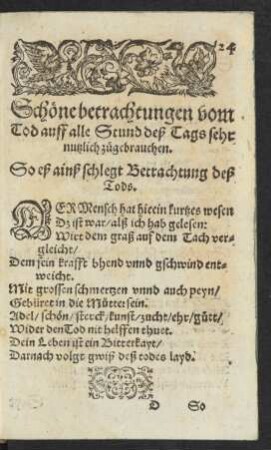 24
Schöne betrachtungen vom
Tod auff alle Stund deß Tags sehr
nutzlich zůgebrauchen.
So eß ainß schlegt Betrachtung deß
Tods.
DER Mensch hat hiein kurtzes wesen
Dz ist war/ alß ich hab gelesen:
Wirt dem graß auf dem Tach ver-
gleicht/
Dem sein krafft bhend vnnd gschwind ent-
weicht.
Mit grossen schmertzen vnnd auch peyn/
Gebüret in die Můtter sein.
Adel/ schön/ sterck/ kunst/ zucht/ ehr/ gůtt/
Wider den Tod nit helffen thuet.
Dein Leben ist ein Bitterkayt/
Darnach volgt gwiß deß todes layd.
D So